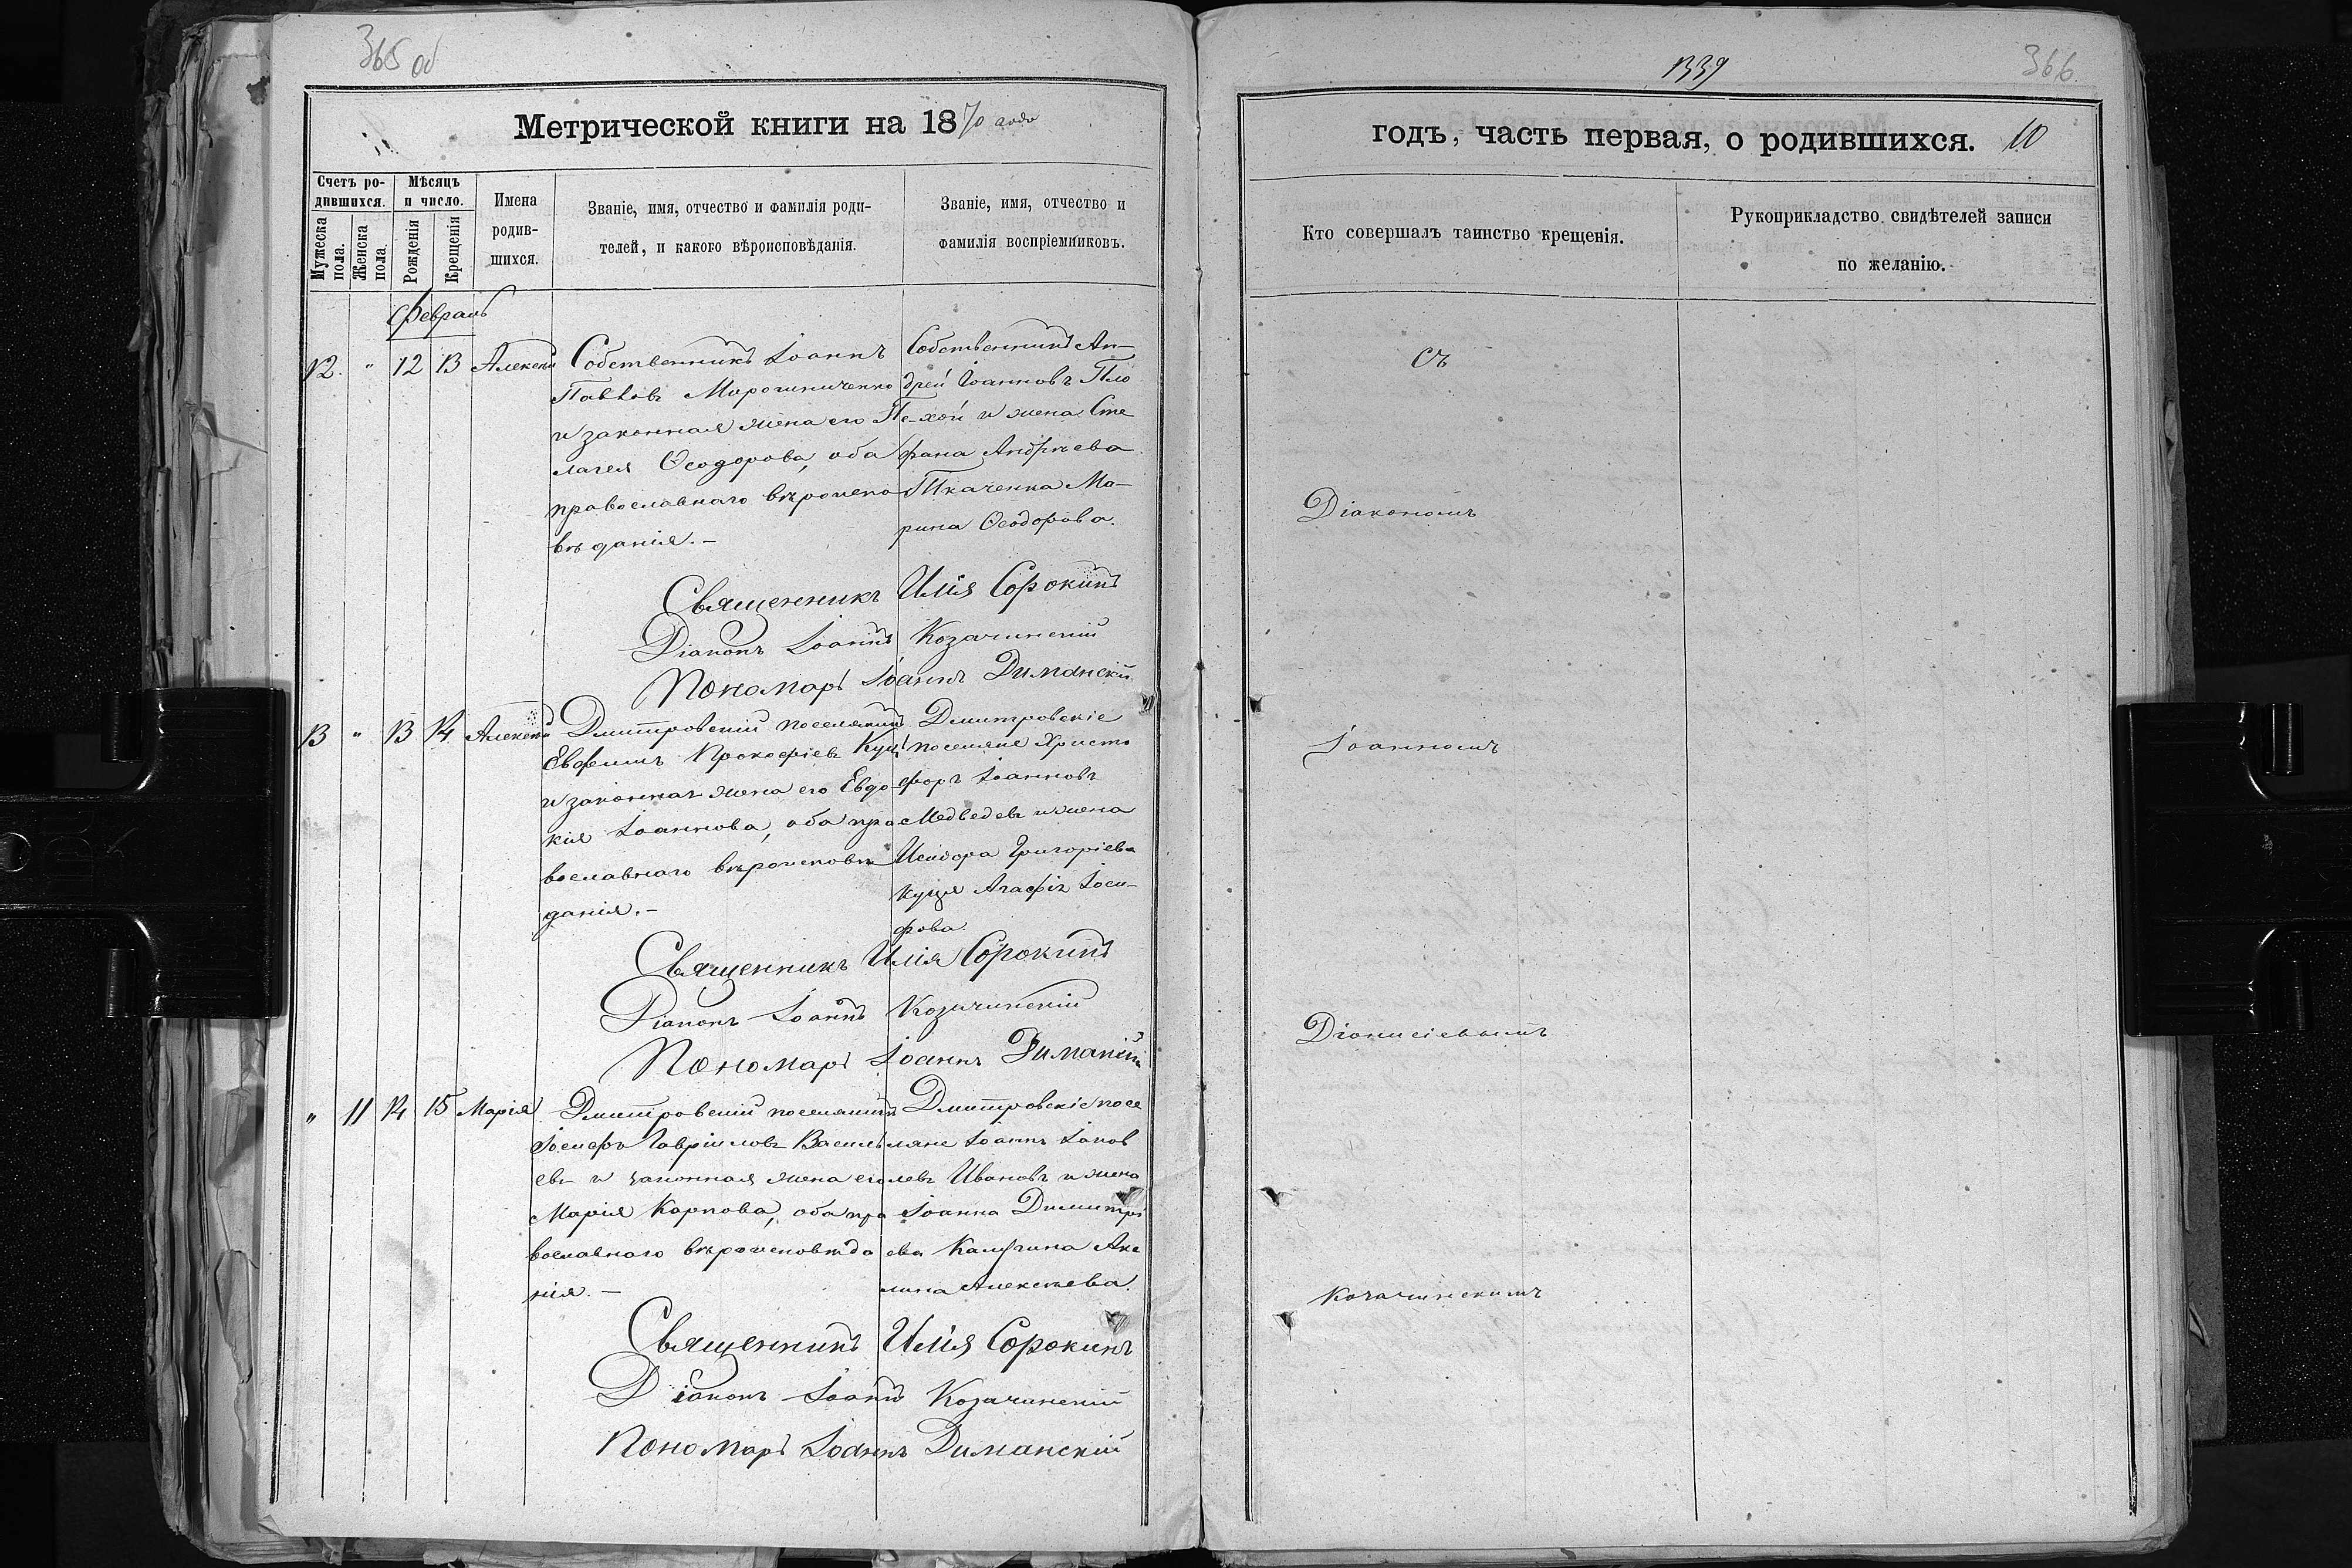 365 об
Метрической книги на 1870 года
Счетъ ро-
дившихся.
Мужеска пола.
Женска пола.
Мѣсяцъ
и число.
Рожденія
Крещенія
Имена
родив-
шихся.
Званіе, имя, отчество и фамилія роди-
телей, и какого вѣроисповѣданія.
Званіе, имя, отчество и
фамилія воспріемниковъ.
Февраль
12. " 12 13 Алексѣй
Собственникъ Іоаннъ
Павловъ
и законная жена его Пе-
лагея Ѳеодорова, оба
православнаго вѣроиспо
вѣданія.-
Собственникъ Ан-
дрей Іоанновъ Пло
хой и жена Сте
фана Андреева
Ткаченка Ма-
рина Ѳеодорова.
Священникъ Илія Сорокинъ
Діаконъ Іоаннъ Козачинскій
Пономарь Іоаннъ Диманскій
13 " 13 14 Алексѣй
Дмитровскій поселянинъ
Евфимъ Прокофіевъ Куцъ
и законная жена его Евдо-
кія Іоаннова, оба пра
вославнаго вѣроисповѣ
данія.-
Дмитровскіе
поселяне Христо
форъ Іоанновъ
Медведевъ и жена
Исидора Григоріева
Куця Агафія Іоси-
фова.
Священникъ Илія Сорокинъ
Діаконъ Іоаннъ Козачинскій
Пономарь Іоаннъ Диманскій
" 11 14 15 Марія
Дмитровскій поселянинъ
Іосифъ Гавріиловъ Василь
евъ и законная жена его
Марія Карпова, оба пра
вославнаго вѣроисповѣда
нія.-
Дмитровскіе посе
ляне Іоаннъ Іаков
левъ Ивановъ и жена
Іоанна Димитрі
ева Аки
лина Алексѣева.
Священникъ Илія Сорокинъ
Діаконъ Іоаннъ Козачинскій
Пономарь Іоаннъ Диманскій
1339
366.
годъ, часть первая, о родившихся. 10
Кто совершалъ таинство крещенія.
Рукоприкладство свидѣтелей записи
по желанію.
съ
Діакономъ
Іоанномъ
Діонисіевымъ
Козачинскимъ